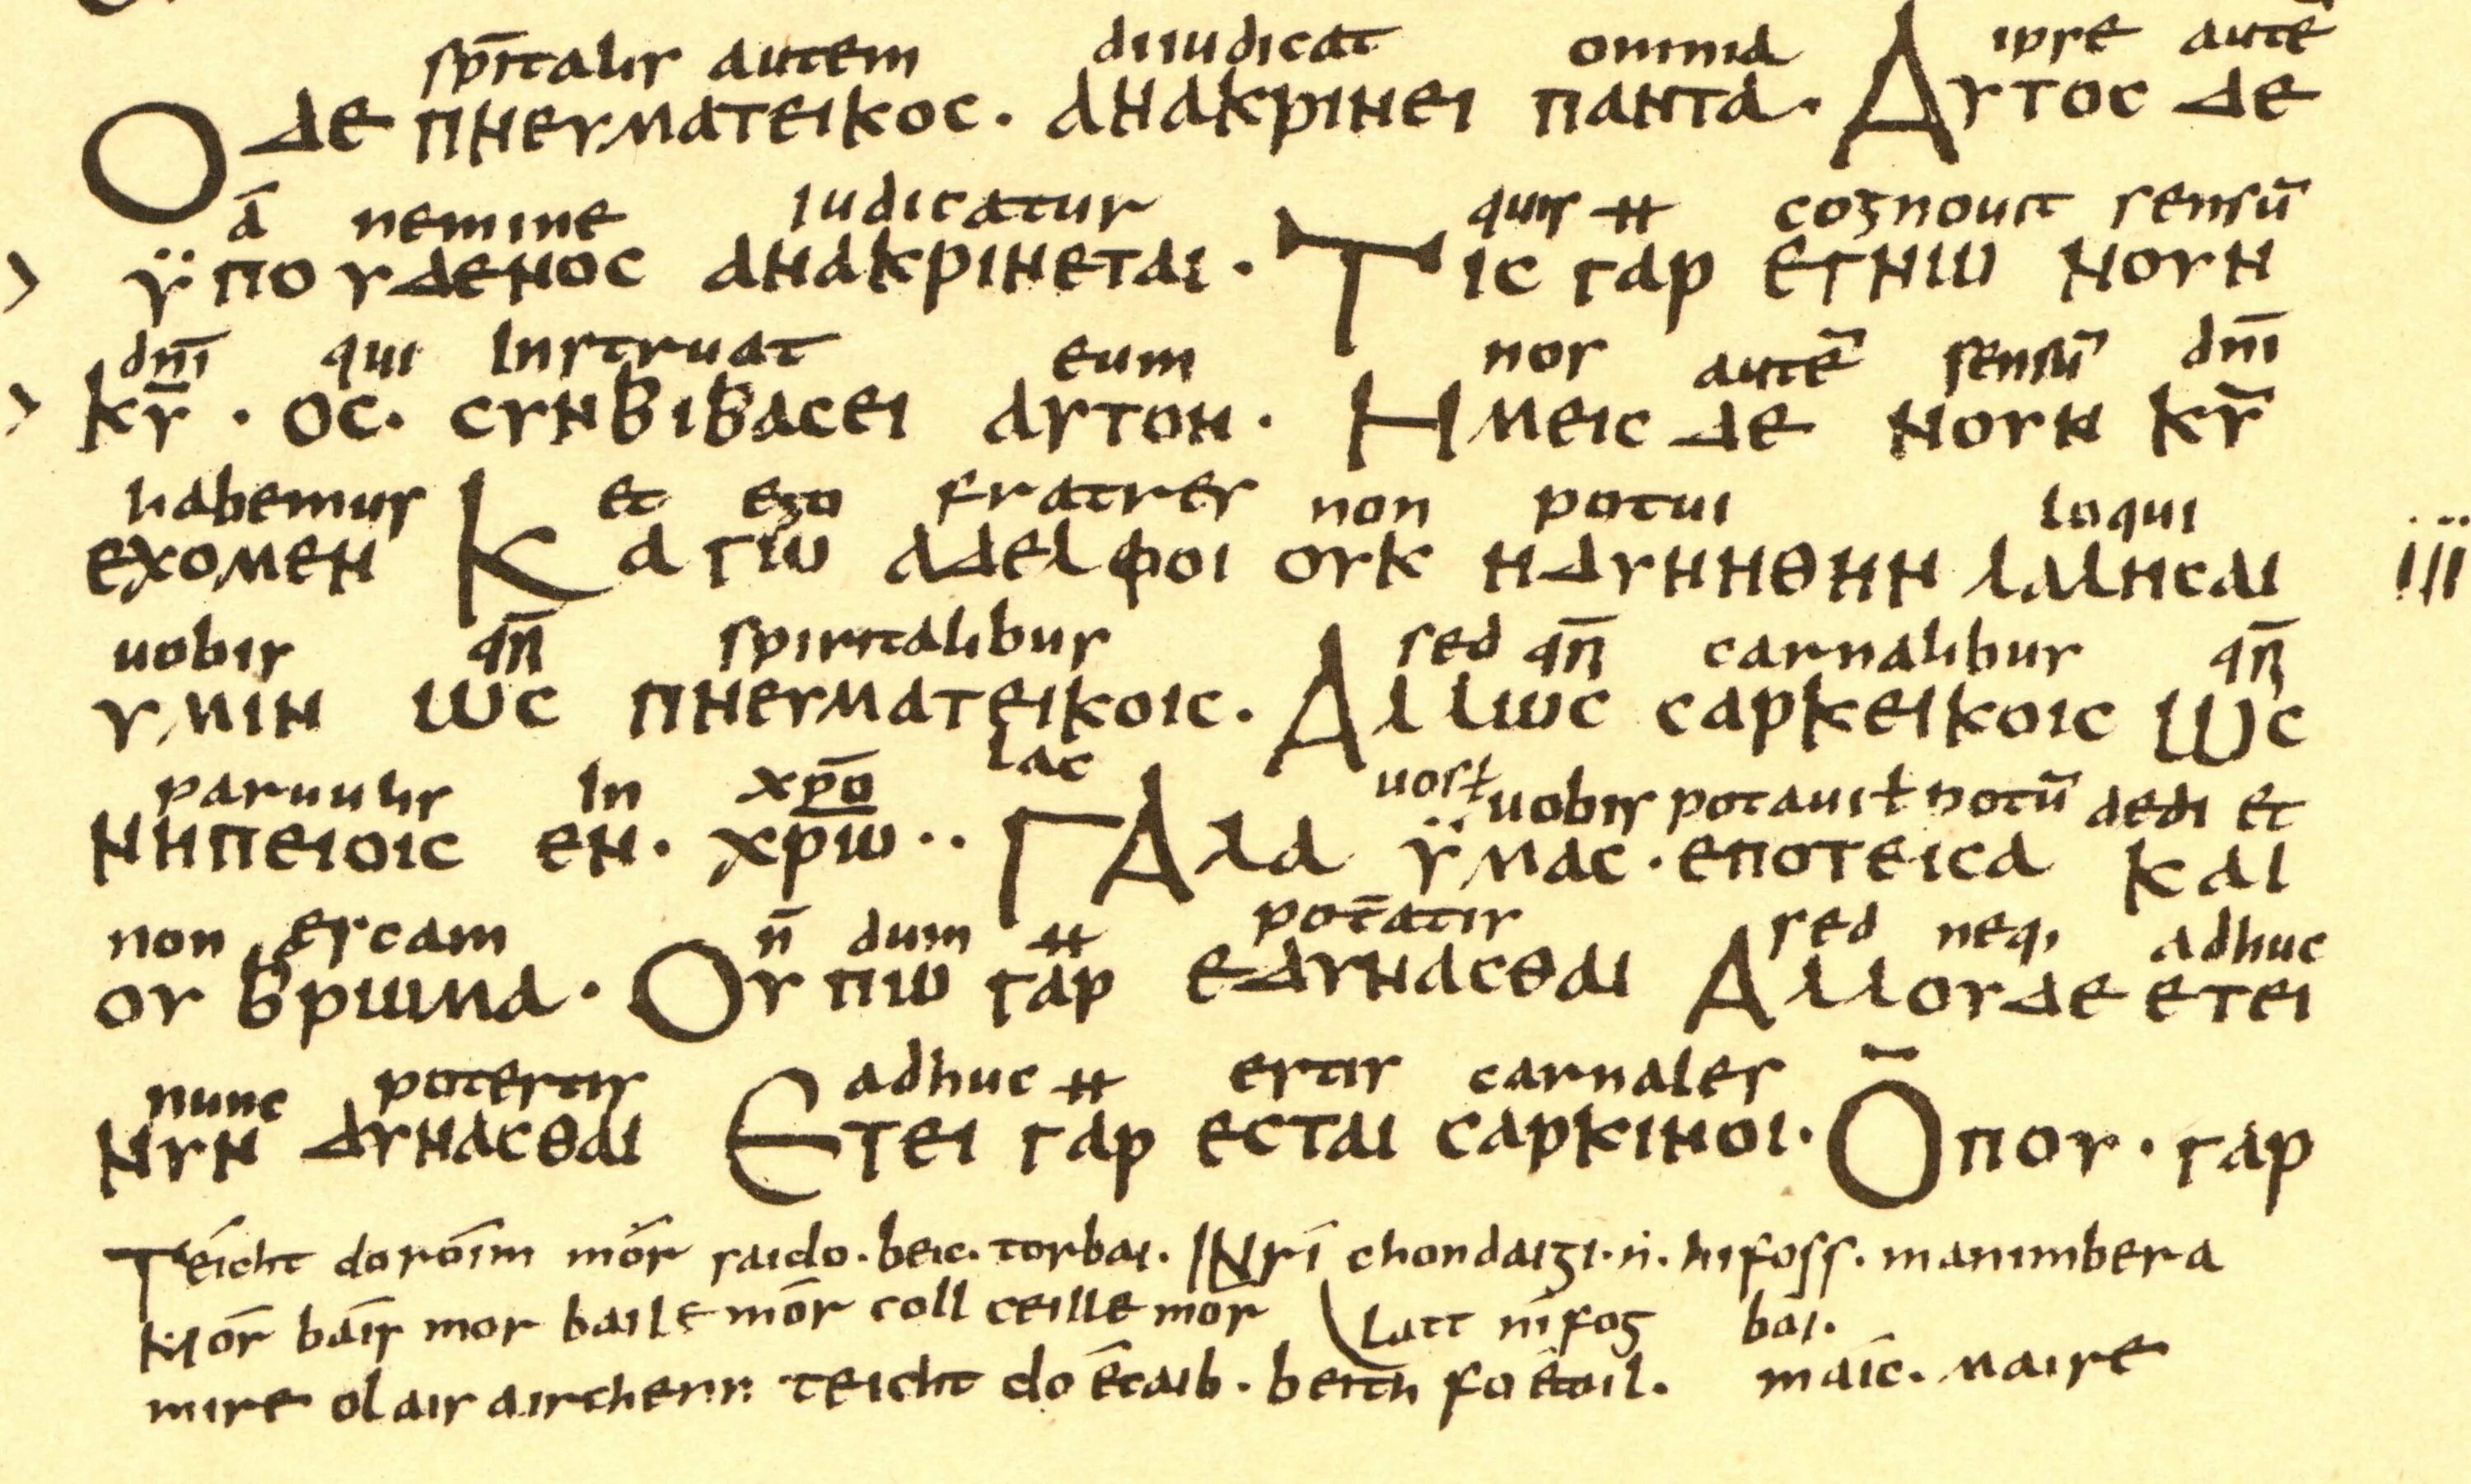 spītalis autem diiudicat omnia ipse autē
Ο ΔΕ ΠΝΕΥΜΑΤΕΙΚΟС· ΑΝΑΚΡΙΝΕΙ ΠΑΝΤΑ· ΑΥΤΟС ΔΕ
ā nemine iudicatur quis ƕ cognouit sensū
ΫΠΟΥΔΕΝΟС ΑΝΑΚΡΙΝΕΤΑΙ· ΤΙС ΓΑΡ ΕΓΝΩ ΝΟΥΝ
dn̄i qui Instruat eum nos autē sensū dn̄i
ΚῩ · ΟС· СΥΝΒΙΒΑСΕΙ ΑΥΤΟΝ· ΗΜΕΙС ΔΕ ΝΟΥΝ ΚῩ
habemus et ego fratres non potui loqui
ΕΧΟΜΕΝ ΚΑΓΩ ΑΔΕΛΦΟΙ ΟΥΚ ΗΔΥΝΗΘΗΝ ΛΑΛΗСΑΙ iii
uobis qn̄ spiritalibus sed qn̄ carnalibus qn̄
ΥΜΙΝ ΩС ΠΝΕΥΜΑΤΕΙΚΟΙС· ΑΛΛΩС СΑΡΚΕΙΚΟΙС ΩС
paruulis In xp̄o lac uos ł uobis potaui ł potū dedi et
ΝΗΠΕΙΟΙС ΕΝ· ΧΡΩ̄·· ΓΑΛΑ ΫΜΑС· ΕΠΟΤΕΙСΑ ΚΑΙ
non escam n̄ dum ƕ potātis sed neq; adhuc
ΟΥ ΒΡΩΜΑ· ΟΥ ΠΩ ΓΑΡ ΕΔΥΝΑСΘΑΙ ΑΛΛΟΥΔΕ ΕΤΕΙ
nunc potestis adhuc ƕ estis carnales
ΝΥΝ ΔΥΝΑСΘΑΙ ΕΤΕΙ ΓΑΡ ΕСΤΑΙ СΑΡΚΙΝΟΙ· Ο̄ΠΟΥ· ΓΑΡ
Téicht doróim mór saido· beic· torbai· INrí chondaigi·ṅ· hifoss· manimbera
Mór báis mor baile mór coll ceille mór latt nífog bai·
mire olais airchenn teicht do écaib· beith fo étoil· máic· maire